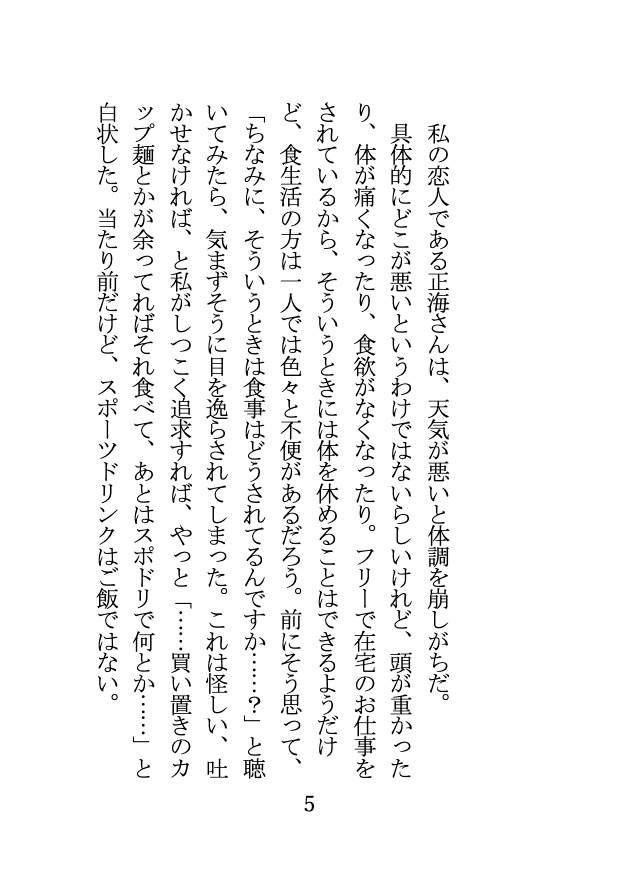 私の恋人である正海さんは、天気が悪いと体調を崩しがちだ。
具体的にどこが悪いというわけではないらしいけれど、頭が重かった
り、体が痛くなったり、食欲がなくなったり。フリーで在宅のお仕事を
されているから、そういうときには体を休めることはできるようだけ
ど、食生活の方は一人では色々と不便があるだろう。前にそう思って、
「ちなみに、そういうときは食事はどうされてるんですか……？」と聴
いてみたら、気まずそうに目を逸らされてしまった。これは怪しい、吐
かせなければ、と私がしつこく追求すれば、やっと「……買い置きのカ
ップ麺とかが余ってればそれ食べて、あとはスポドリで何とか……」と
白状した。当たり前だけど、スポーツドリンクはご飯ではない。
5